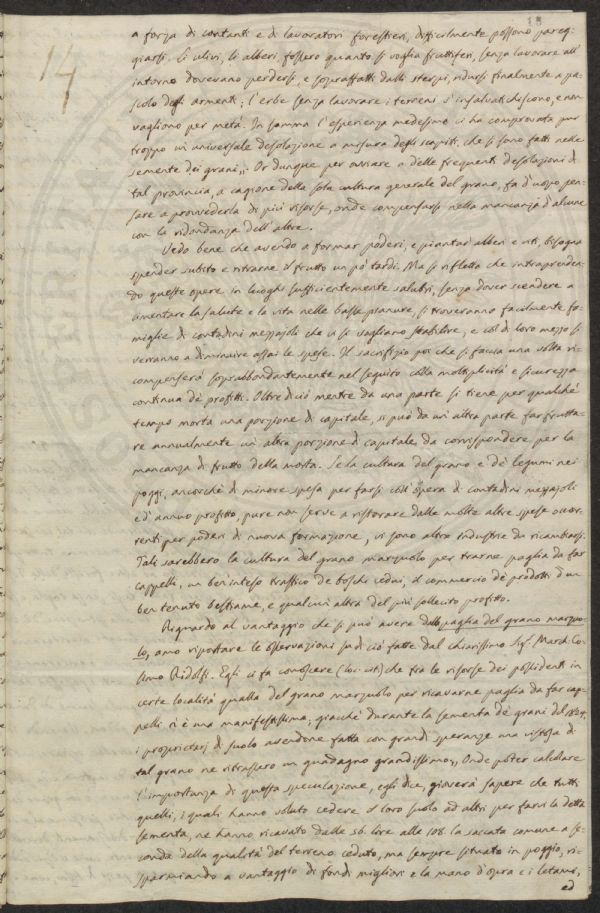 18
14
a forza di contanti e di lavoratori forestieri, difficilmente possono pareg-
giarsi. Gli ulivi, li alberi, fossero quanto si voglia fruttiferi, senza lavorare all'
intorno dovevano perdersi, e sopraffatti dalli sterpi, ridursi finalmente a pa-
scolo degli armenti; l'erbe senza lavorare i terreni s'insalvatichiscono, e non
vagliono per metà. In somma l'esperienza medesima ci ha comprovata pur
troppo un'universale desolazione a misura degli scapiti, che si sono fatti nelle
semente dei grani„. Or dunque per ovviare a delle frequenti desolazioni di
tal provincia, a cagione della sola cultura generale del grano, fa d'uopo pen-
sare a provvederla di più risorse, onde compensarsi nella mancanza d'alcune
con la ridondanza dell'altre.
Vedo bene che avendo a formar poderi, e piantar alberi e viti, bisogna
spender subito e ritrarne il frutto un po' tardi. Ma si rifletta che intraprenden-
do queste opere in luoghi sufficientemente salubri, senza dover scendere a
cimentare la salute e la vita nelle basse pianure, si troveranno facilmente fa-
miglie di contadini mezzajoli che vi si vogliano stabilire, e col di loro mezzo si
verranno a diminuire assai le spese. Il sacrifizio poi che si faccia una volta ri-
compenserà soprabbondantemente nel seguito colla moltiplicità e sicurezza
continua de' profitti. Oltre di ciò mentre da una parte si tiene per qualche
tempo morta una porzione di capitale, si può da un'altra parte far frutta-
re annualmente un'altra porzione di capitale da corrispondere per la
mancanza di frutto della morta. Se la cultura del grano e de' legumi nei
poggi, ancorchè di minore spesa per farsi coll'opera di contadini mezzajoli
e d'annuo profitto, pure non serve a ristorare dalle molte altre spese occor-
renti per poderi di nuova formazione, vi sono altre industrie da ricambiarsi.
Tali sarebbero la cultura del grano marzuolo per trarne paglia da far
cappelli, un ben inteso traffico de boschi cedui, il commercio de' prodotti d'un
ben tenuto bestiame, e qualcun'altra del più sollecito profitto.
Riguardo al vantaggio che si può avere dalla paglia del grano marzuo-
lo, amo riportare le osservazioni su di ciò fatte dal chiarissimo Sig. March. Co-
simo Ridolfi. Egli ci fa conoscere (loc. cit.) che fra le risorse dei possidenti in
certe località quella del grano marzuolo per ricavarne paglia da far cap-
pelli vi è una manifestissima; giacchè durante la sementa de' grani del
i proprietarj di suolo avendone fatta con grandi speranze una vistosa di
tal grano ne ritrassero un guadagno grandissimo„. Onde poter calcolare
l'importanza di questa speculazione, egli dice, gioverà sapere che tutti
quelli, i quali hanno voluto cedere il loro suolo ad altri per farvi la detta
sementa, ne hanno ricavato dalle 56. lire alle 108. la saccata comune a se-
conda della qualità del terreno ceduto, ma sempre situato in poggio, ri-
sparmiando a vantaggio di fondi migliori e la mano d'opra e i letami,
ed